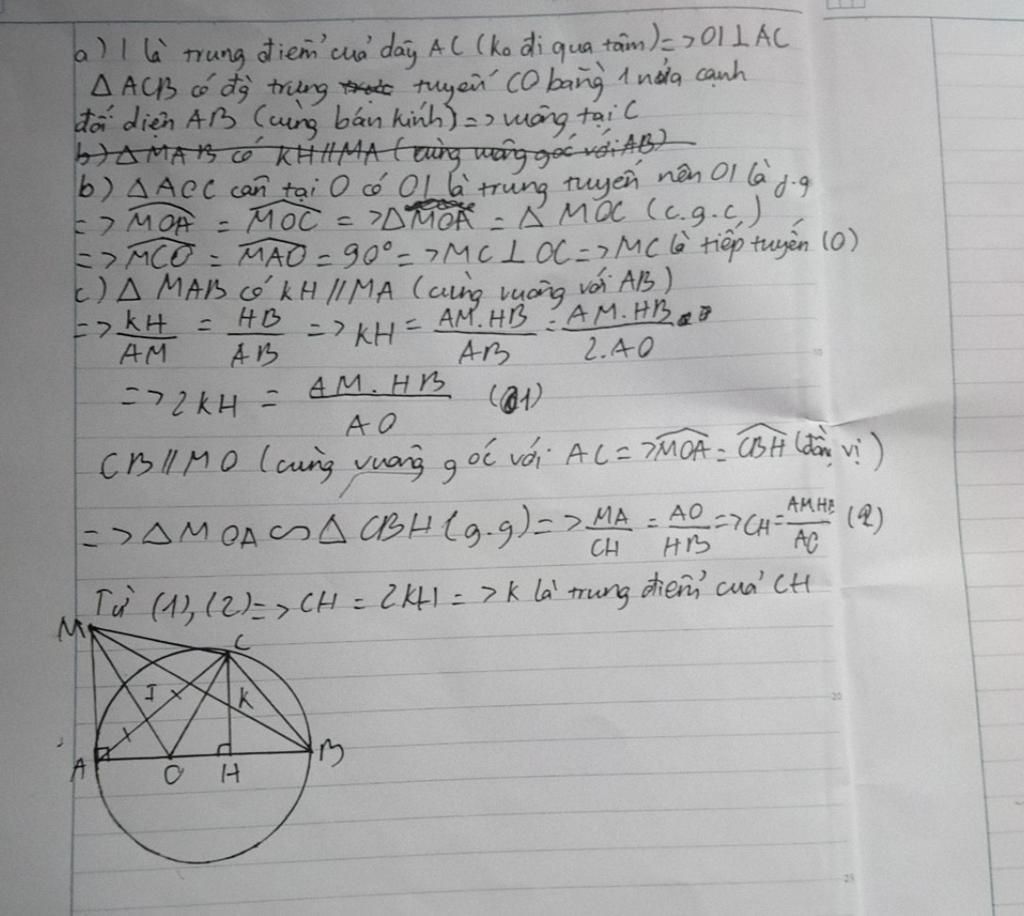 a) I là trung điểm của dây AC (ko đi qua tâm) => OI ⊥ AC
Δ ACB có đg trung tuyến CO bằng 1 nửa cạnh
đối diện AB (cùng bán kính) => vuông tại C
b) Δ MAB có KH // MA (cùng vuông góc với AB)
b) Δ AOC cân tại O có OI là trung tuyến nên OI là p.g
=> MOA = MOC => Δ MOA = Δ MOC (c.g.c)
=> MCO = MAO = 90° => MC ⊥ OC => MC là tiếp tuyến (O)
c) Δ MAB có KH // MA (cùng vuông với AB)
=> KH/AM = HB/AB => KH = AM.HB/AB = AM.HB/2.AO
=> 2KH = AM.HB/AO (1)
CB // MO (cùng vuông góc với AC => MOA = CBH (đồng vị)
=> Δ MOA ∽ Δ CBH (g.g) => MA/CH = AO/HB => CH = AM.HB/AC (2)
Từ (1), (2) => CH = 2KH => K là trung điểm của CH
M C
I K
A O H B